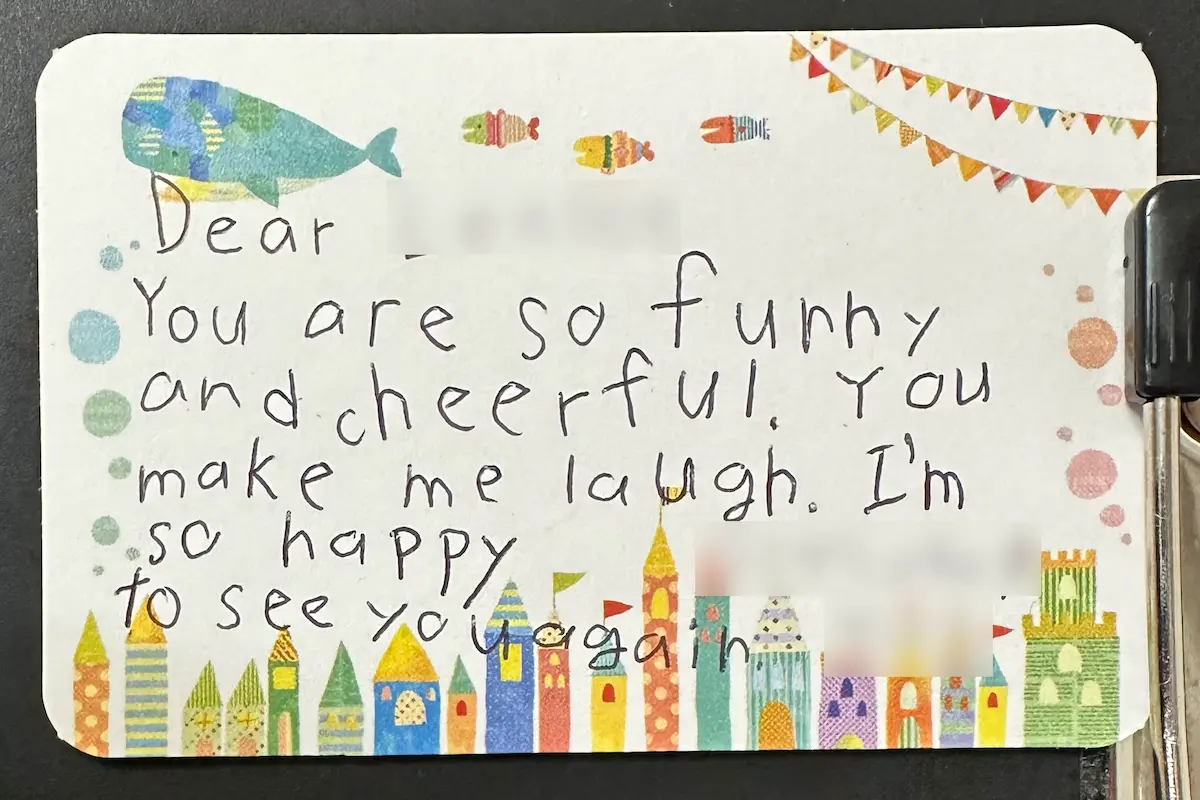 Dear
You are so funny
and cheerful. You
make me laugh. I'm
so happy
to see you again.